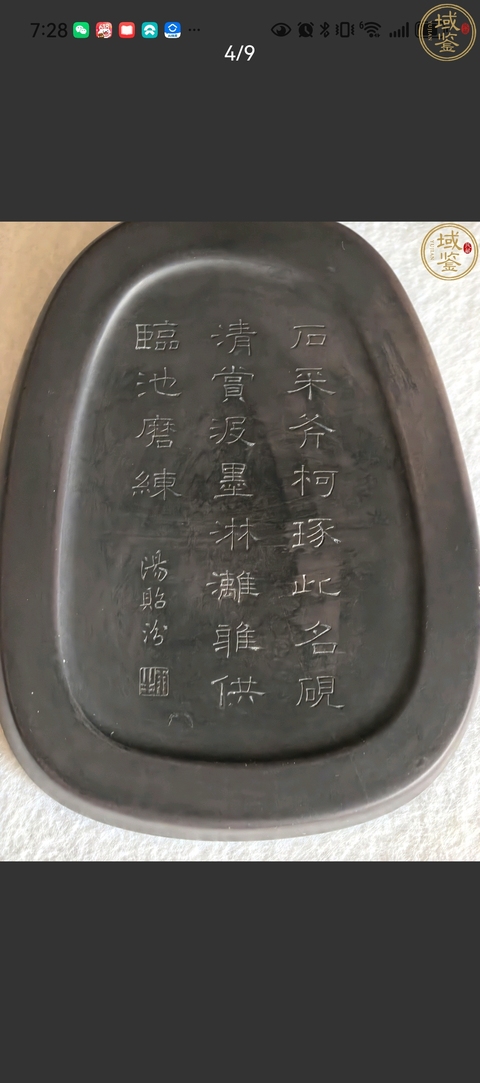 7:28
4/9
域鉴
域鉴
石采斧柯琢此名硯
清賞汲墨淋灕雅供
臨池磨練
湯貽汾